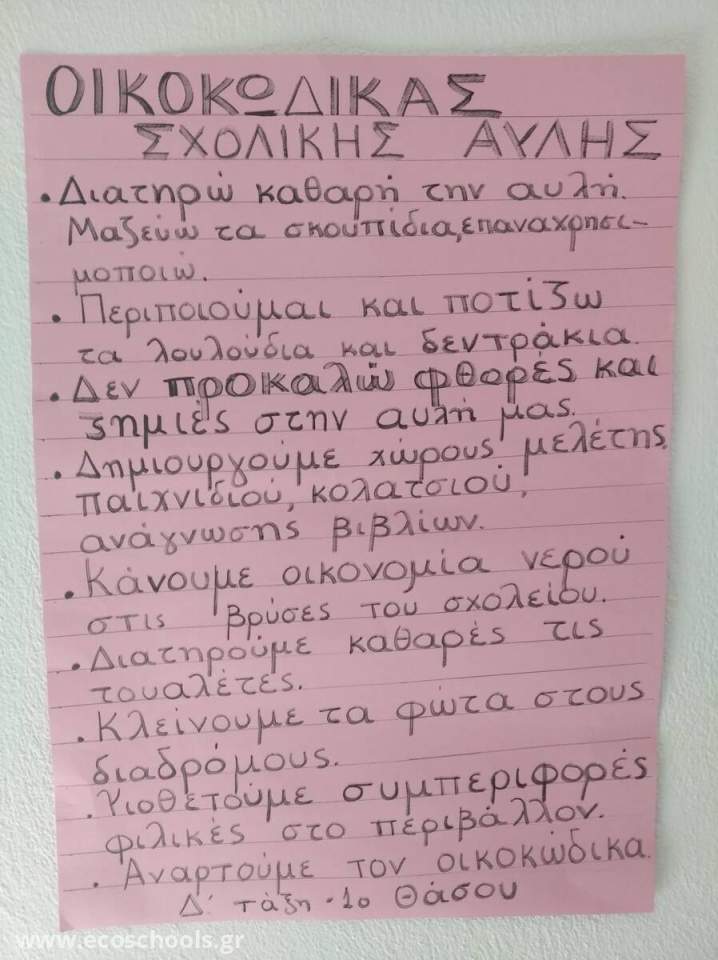 ΟΙΚΟΚΩΔΙΚΑΣ
ΣΧΟΛΙΚΗΣ ΑΥΛΗΣ
• Διατηρώ καθαρή την αυλή.
Μαζεύω τα σκουπίδια, επαναχρησι-
μοποιώ.
• Περιποιούμαι και ποτίζω
τα λουλούδια και δεντράκια.
• Δεν προκαλώ φθορές και
ζημιές στην αυλή μας.
• Δημιουργούμε χώρους μελέτης,
παιχνιδιού, κολατσιού,
ανάγνωσης βιβλίων.
• Κάνουμε οικονομία νερού
στις βρύσες του σχολείου.
• Διατηρούμε καθαρές τις
τουαλέτες.
• Κλείνουμε τα φώτα στους
διαδρόμους.
• Υιοθετούμε συμπεριφορές
φιλικές στο περιβάλλον.
• Αναρτούμε τον οικοκώδικα.
Δ' τάξη · 1ο Θάσου
www.ecoschools.gr